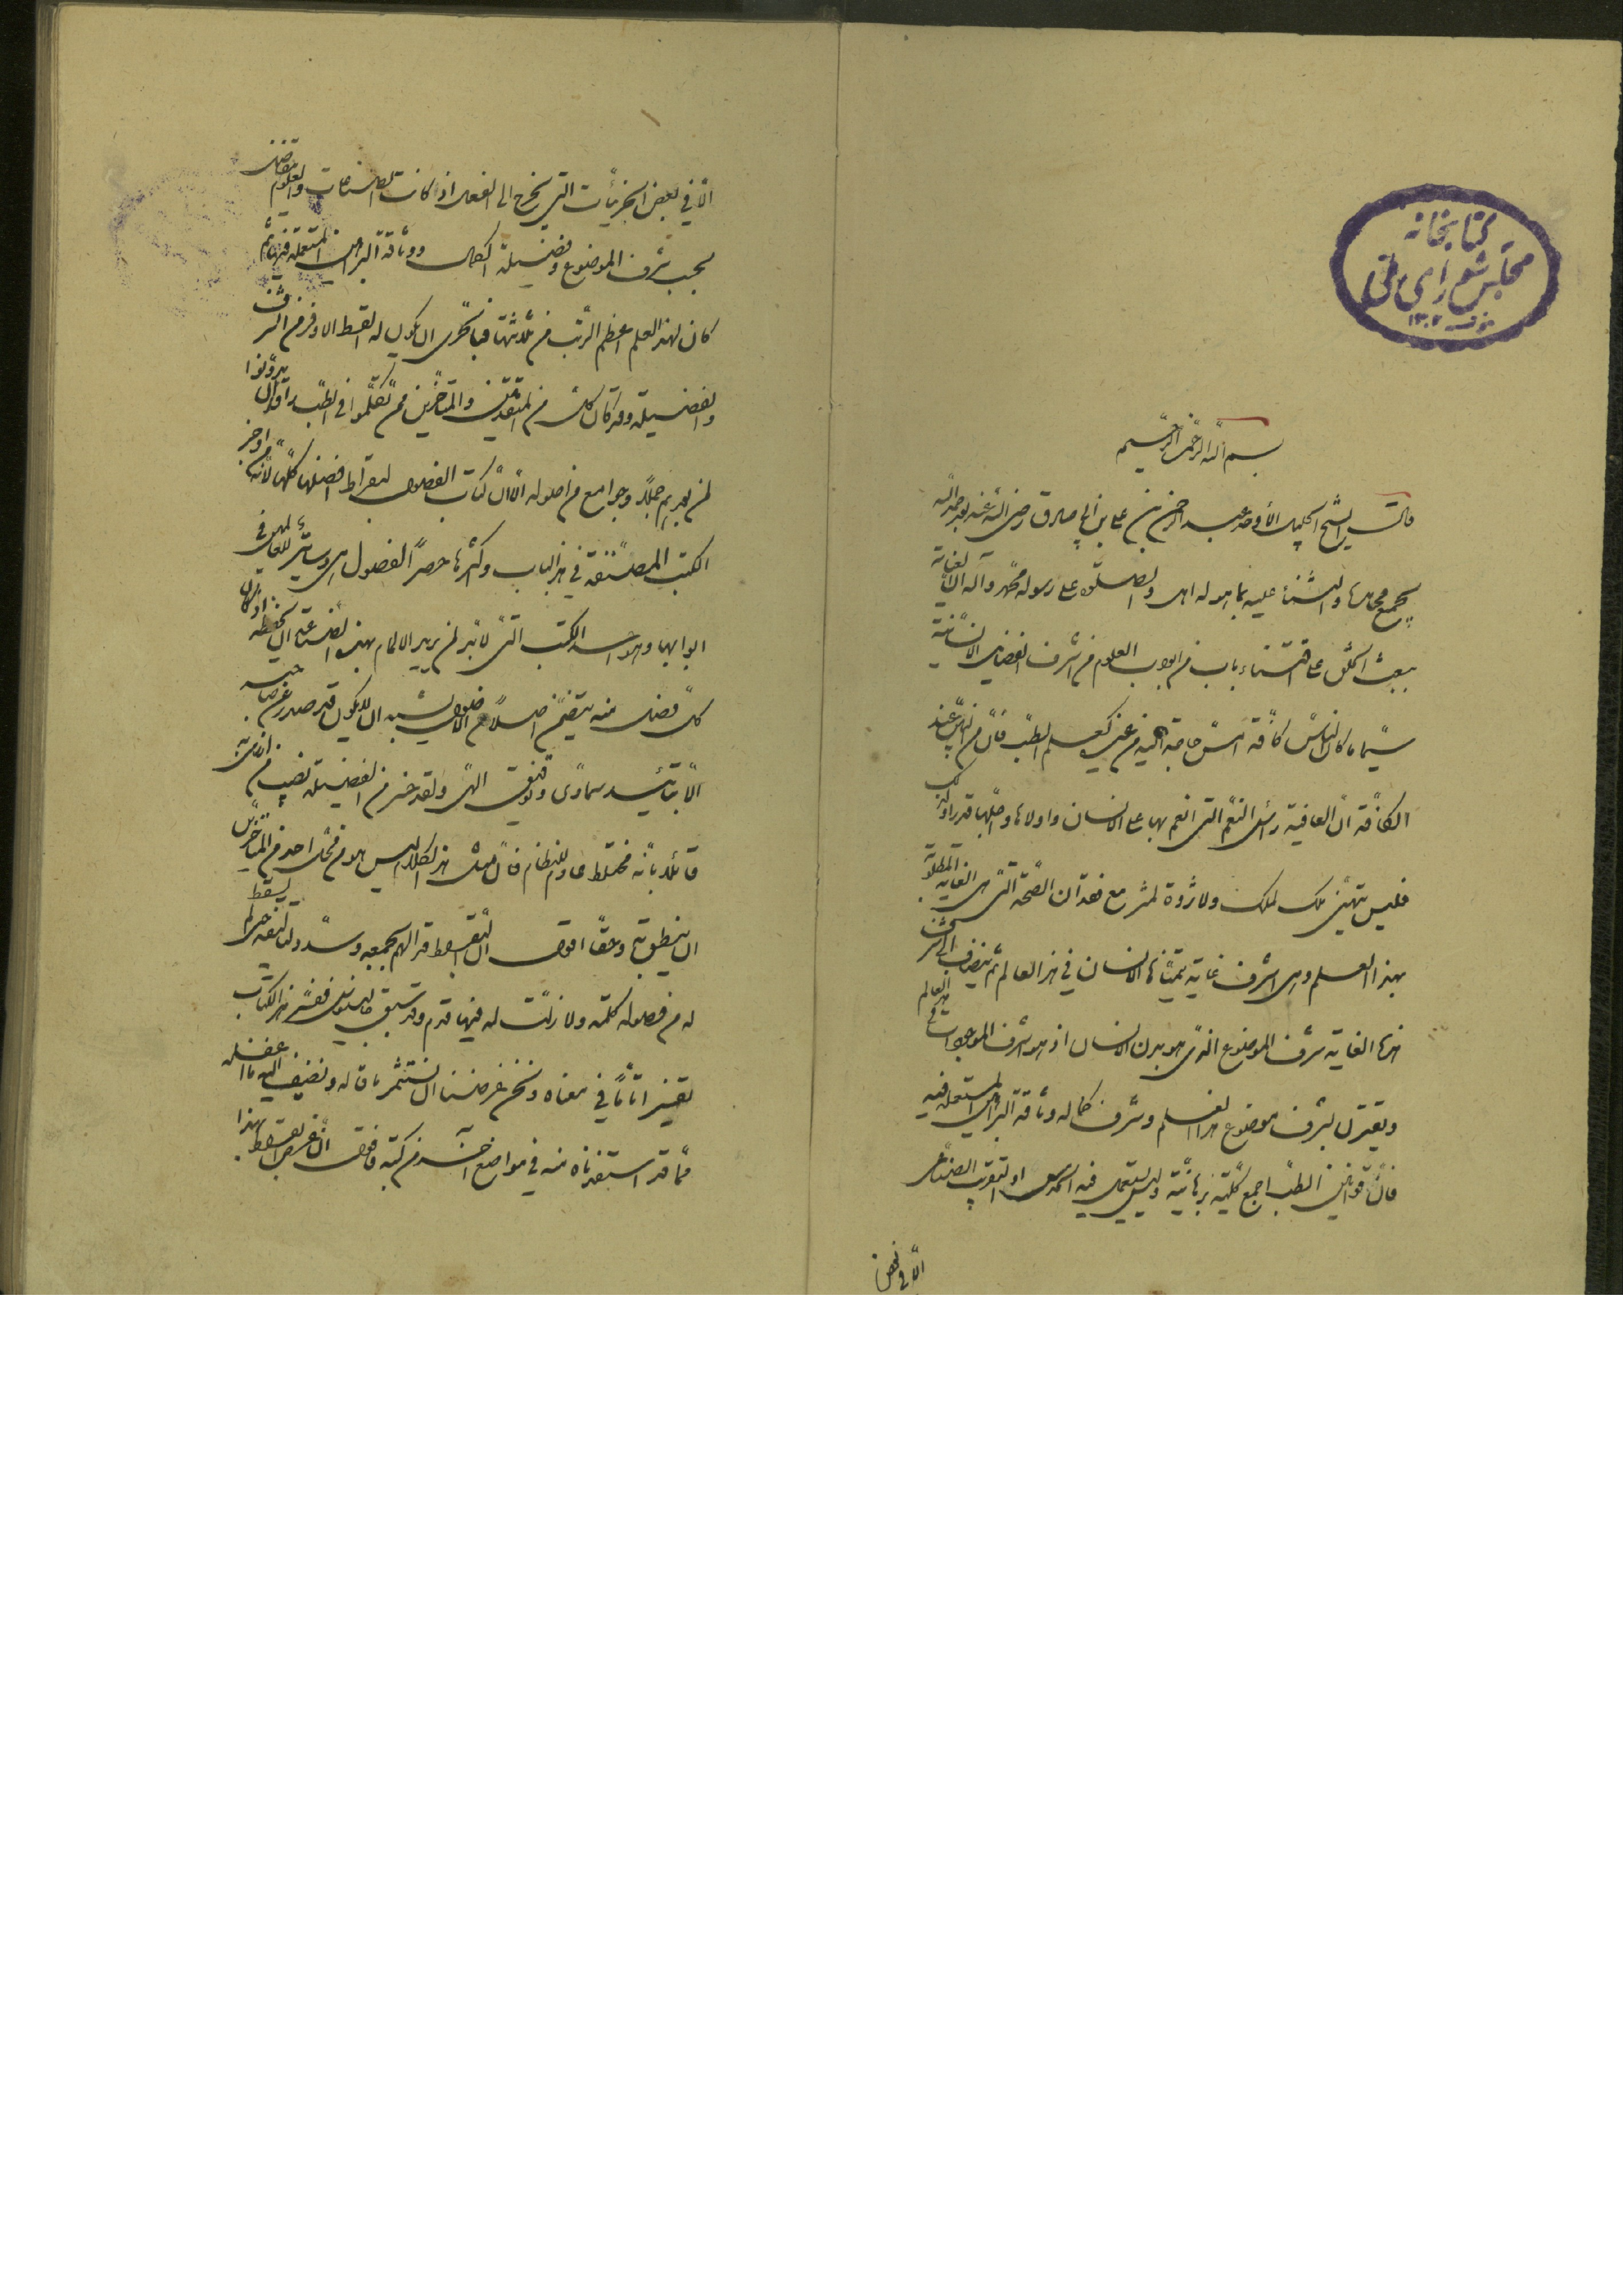 كتابخانه
مجلس شورای ملی
۱۳۰۲
بسم الله الرحمن الرحيم
قال الشيخ الحكيم الأوحد عبد الرحمن بن علی بن ابی صادق رضی الله عنه بعد حمد الله
بجميع محامده والثناء عليه بما هو له اهل والصلوة على رسوله محمد وآله ان العناية
ببعث الخلق على اقتناء باب من ابواب العلوم من اشرف الفضايل الانسانية
سيّما ما كان الناس كافّة امسّ حاجة اليه من غيره كعلم الطبّ فانّ من البيّن عند
الكافّة انّ العافية رأس النعم التی انعم بها على الانسان واولاها واجلّها قدرا وذلك
فليس يتهنّى بملك لملك ولا ثروة لمثر مع فقدان الصّحة التّی هی الغاية المطلوبة
بهذا العلم وهی اشرف غاية يتمنّاها الانسان فی هذا العالم ثم ينضاف الى شرف
هذه الغاية شرف الموضوع الذی هو بدن الانسان اذ هو اشرف الموجودات فی هذا العالم
ويقترن بشرف موضوع هذا العلم وشرف كماله وثاقة البراهين المستعملة فيه
فانّ قوانين الطبّ اجمع كلّية برهانيّة وليس يستعمل فيه الحدس او التقريب الصناعی
الّا فی بعض
الّا فی بعض الجزئيّات التی تخرج الى الفعل اذ كانت الصناعات والعلوم تتفاضل
بحسب شرف الموضوع وفضيلة الكمال ووثاقة البراهين المستعملة فيها ثم
كان لهذا العلم اعظم الرتب من ثلاثتها فبالحری ان يكون له القسط الاوفر من الشرف
والفضيلة وقد كان كثير من المتقدمين والمتأخرين ممّن تكلّموا فی الطبّ ارادوا ان يدوّنوا
لمن بعدهم جملا وجوامع من اصوله الّا انّ كتاب الفصول لبقراط افضلها كلّها لانّه اوجز
الكتب المصنّفة فی هذا الباب واكثرها حصرا لفصول هی دساتير للعاملين فی
ابوابها وهو احد الكتب التی لا بدّ لمن يريد الالمام بهذه الصناعة ان يحفظه اذ كان
كلّ فصل منه يتضمّن اصلا من الاصول يشبه ان لا يكون قد صدر عن صاحبه
الّا بتأييد سماوی وتوفيق الهی ولقد خسر من الفضيلة نصيبه من ازری به
قائلا بانّه مختلط عادم للنظام فانّ مثل هذا الكلام ليس هو من محلّ احد من المتأخرين
ان ينطق به وحقا اقول انّ بقراط قد الهم بجميعه وسدّد ولذلك لم يسقط
له من فصوله كلمة ولا زلّت له فيها قدم وقد سبق جالينوس ففسّر هذا الكتاب
تفسيرا تامّا فی معناه ونحن غرضنا ان نستثمر ما قاله ونضيف اليه ما اغفله
ممّا قد استفدناه منه فی مواضع اخر من كتبه فاقول انّ غرض بقراط بهذا